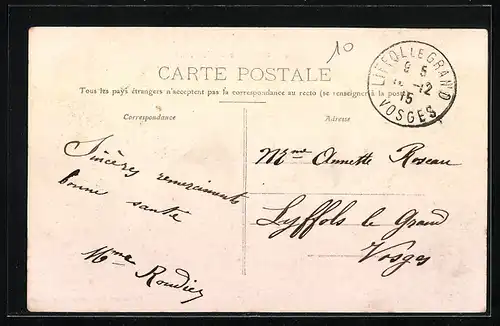 10
CARTE POSTALE
Tous les pays étrangers n'acceptent pas la correspondance au recto (se renseigner à la poste)
LIFFOL-LE-GRAND
VOSGES
-12
15
Correspondance
Adresse
Sincères remerciements
bonne santé
Mme Roudiez
Mme Annette Roseau
Lyffols le Grand
Vosges